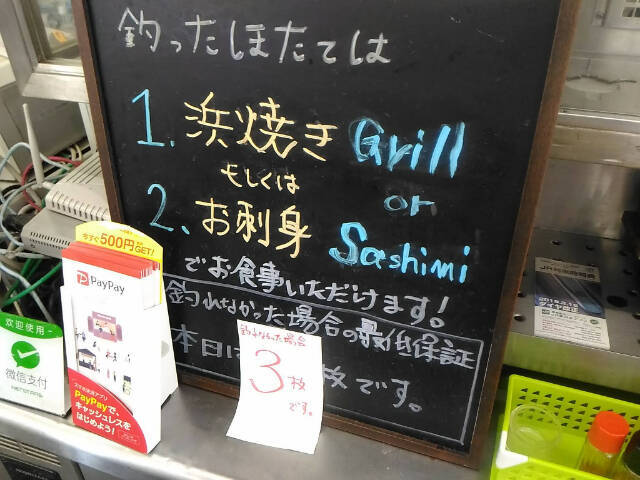 釣ったほたては
1. 浜焼き Grill
もしくは or
2. お刺身 Sashimi
でお食事いただけます!
釣れなかった場合の最低保証
本日は 枚です。
釣れなかった場合
3枚
です。
今すぐ500円GET!
PayPay
スマホ決済アプリ
PayPayで、
キャッシュレスを
はじめよう!
欢迎使用
微信支付